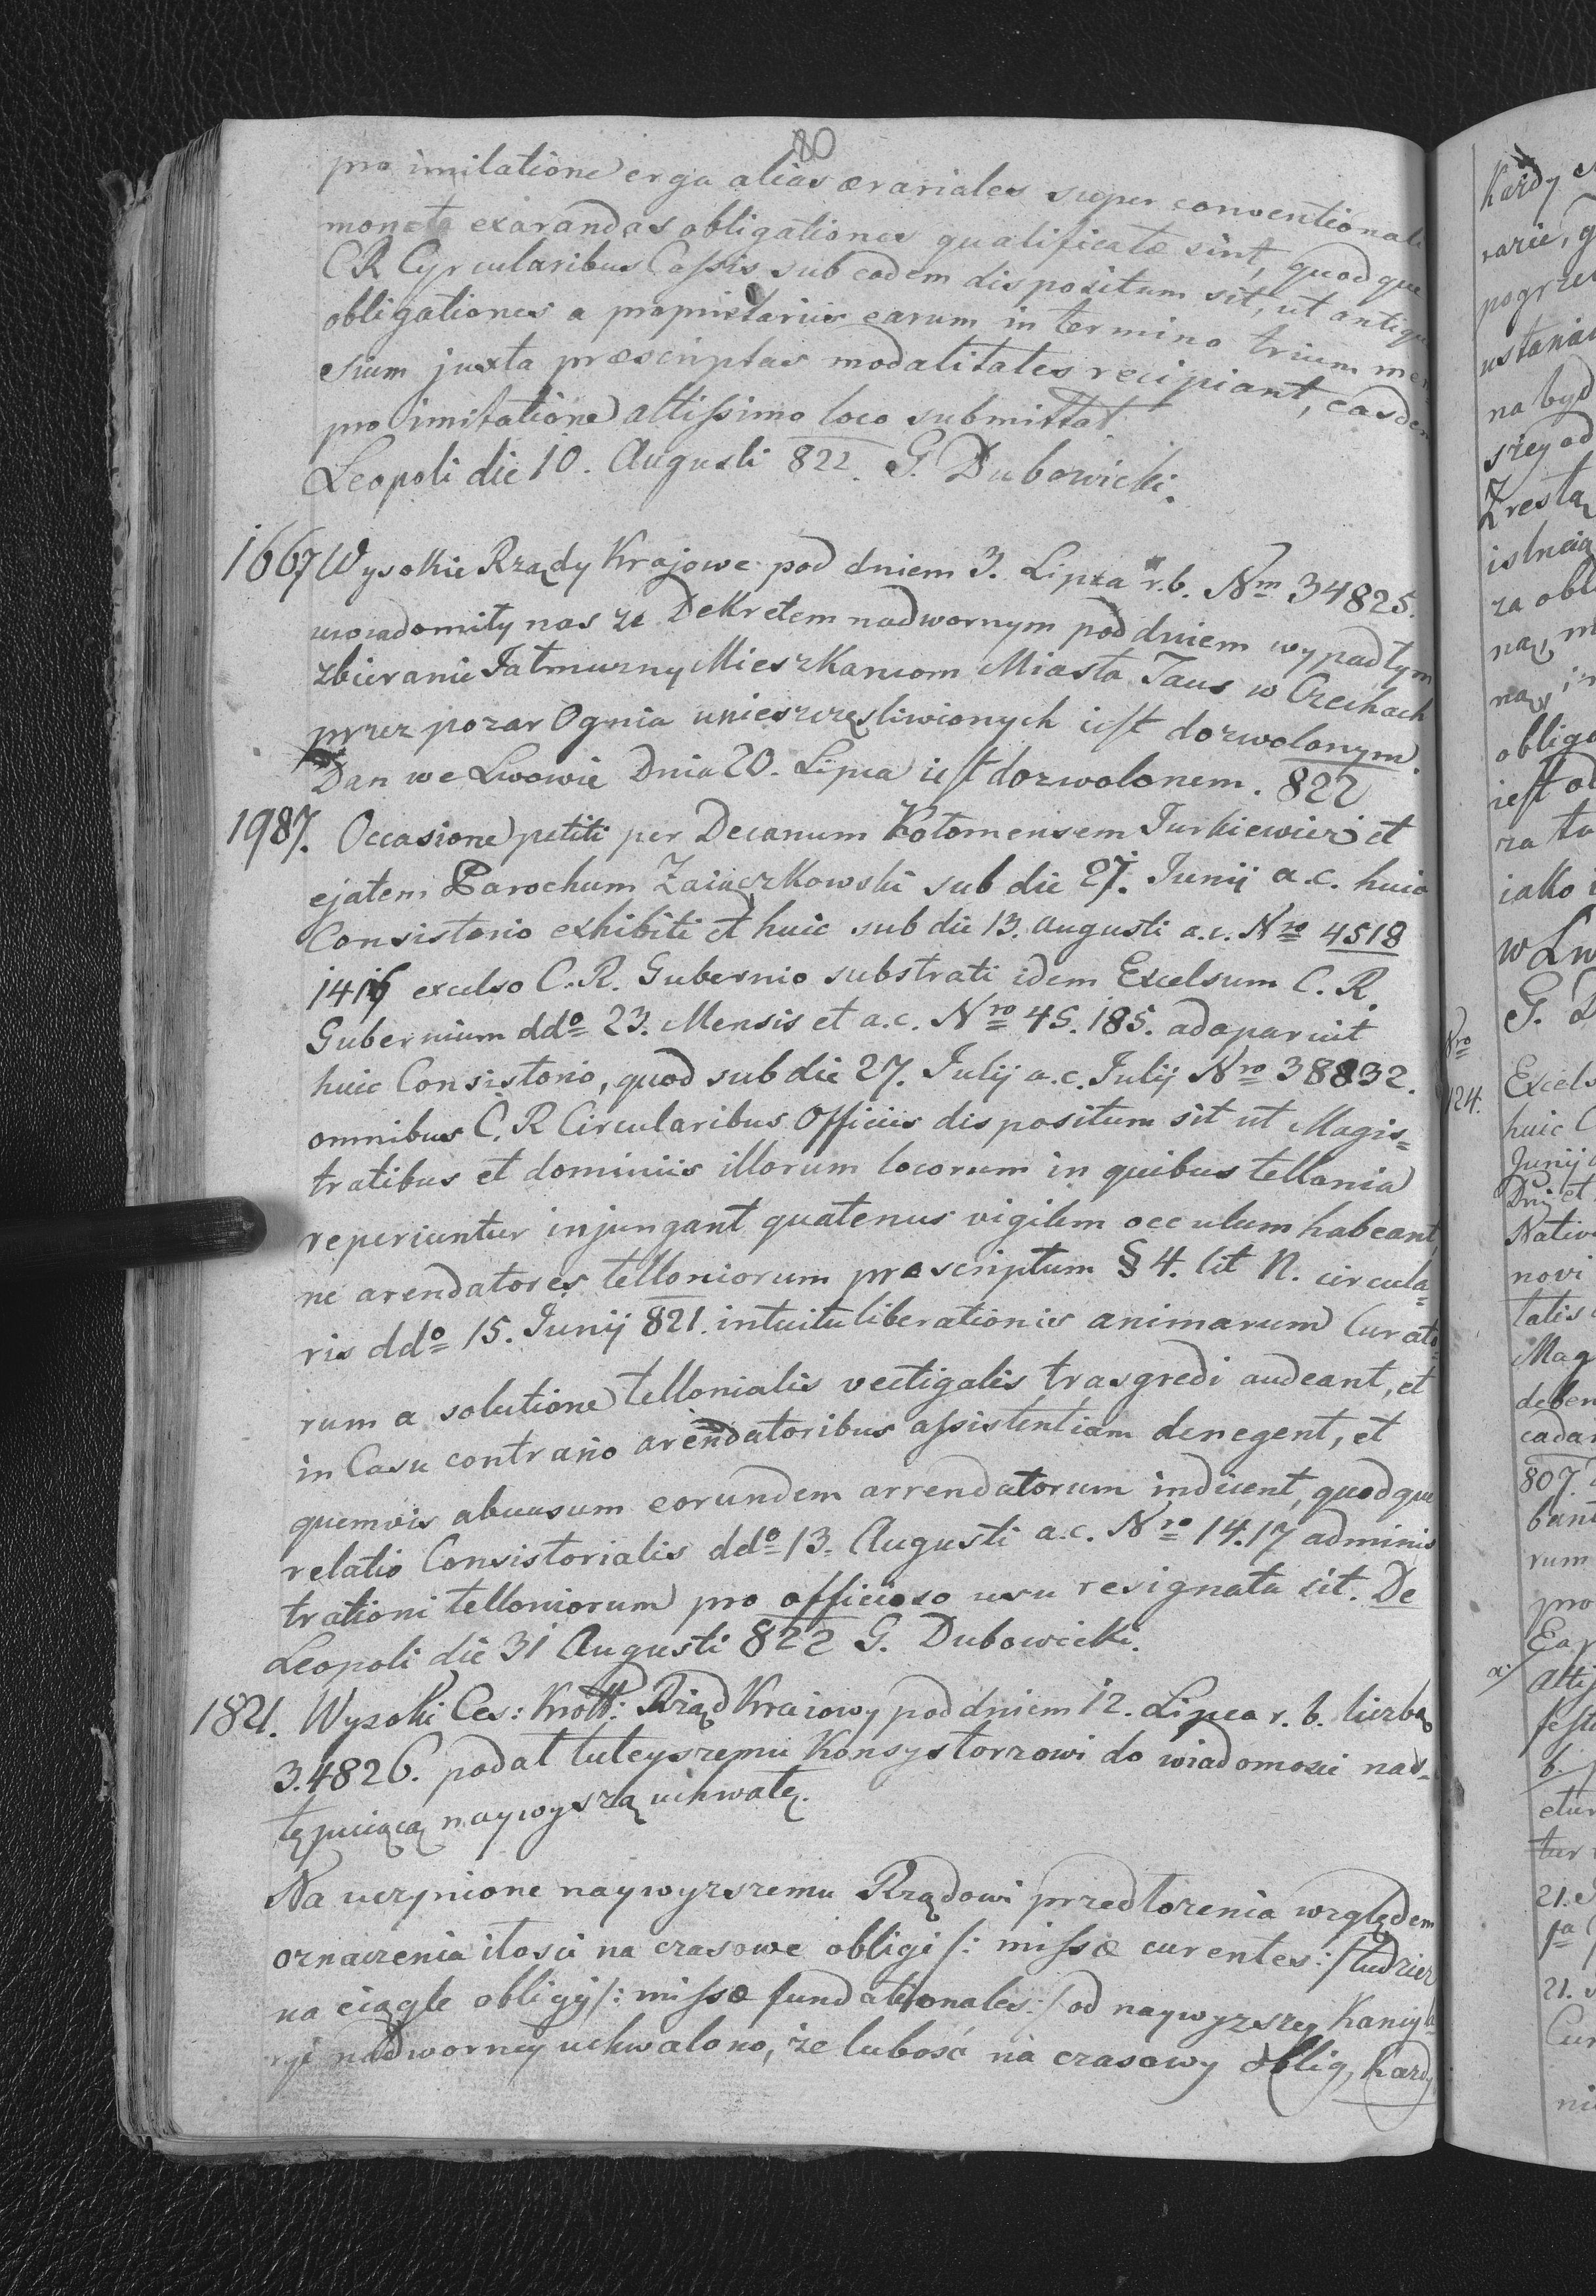 80
pro imitatione erga alias ærariales super conventionali
moneta exarandas obligationes qualificatæ sint, quodque
CR Cyrcularibus Cassis sub eodem dispositum sit, ut antiqu
obligationes a proprietariis earum in termino trium men
sium juxta præscriptas modalitates recipiant, easdem
pro imitatione altissimo loco submittat
Leopoli die 10. Augusti 822. G. Dubowicki.
1667 Wysokie Rządy Krajowe pod dniem 3. Lipca r.b. Nm 34825.
uwiadomiły nas że Dekretem nadwornym pod dniem wypadłym
zbieranie Jałmurzny Mieszkancom Miasta Taus w Czechach
przez pozar Ognia unieszczęsliwionych iest dozwolonym.
Dan we Lwowie Dnia 20. Lipca iest dozwolonem. 822
1987. Occasione petiti per Decanum Kołomensem Jurkiewicz et
ejatem Parochum Zaiączkowski sub die 27. Junij a.c. huic
Consistorio exhibiti et huic sub die 13. Augusti a.c. Nro 4518
1416 excelso C.R. Gubernio substrati idem Excelsum C.R.
Gubernium ddo 23. Mensis et a.c. Nro 45.185. adaparuit
huic Consistorio, quod sub die 27. Julij a.c. Julij Nro 38832.
omnibus C.R Circularibus Officiis dispositum sit ut Magis=
tratibus et dominiis illorum locorum in quibus tellonia
reperiuntur injungant quatenus vigilem occulum habeant,
ne arendatores telloniorum præscriptum § 4. lit N. circula=
ris ddo 15. Junij 821. intuitu liberationis animarum Curato=
rum a solutione tellonialis vectigalis trasgredi audeant, et
in Casu contrario arendatoribus assistentiam denegent, et
quemvis abuusum eorundem arrendatorum indicent, quodque
relatio Consistorialis ddo 13. Augusti a.c. Nro 14.17 adminis
trationi telloniorum pro officioso usu resignata sit. De
Leopoli die 31 Augusti 822 G. Dubowicki.
1821. Wysoki Ces: Krolł: Rząd Kraiowy pod dniem 12. Lipca r.b. liczbą
3.4826. podał tuteyszemu Konsystorzowi do wiadomosci nas=
tępuiącą naywyszą uchwałę.
Na uczynione naywyzszemu Rządowi przedłozenia względem
oznaczenia ilosci na czasowe obligi /: missæ curentes :/ tudziez
na ciągłe obligij /: missæ fundationales :/ od naywyzszey Kancyla
ryi nadworney uchwalono, że lubość na czasowy oblig, kazdy